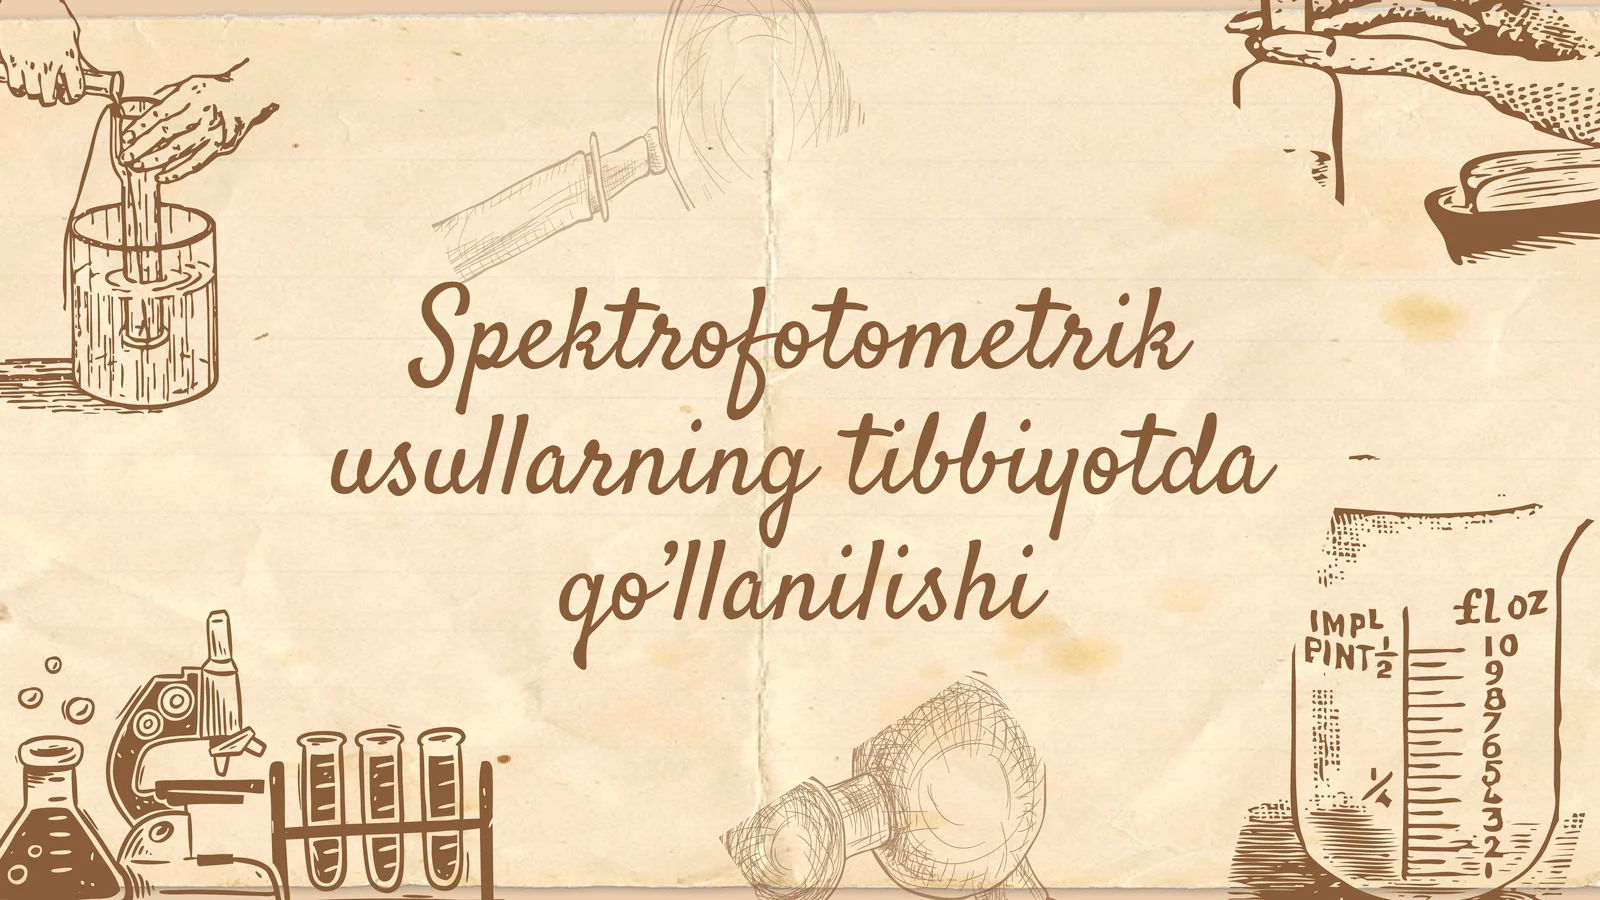 Spektrofotometrik
usullarning tibbiyotda
qo’llanilishi
IMPL
PINT 1/2
fl oz
10
9
8
7
6
5
4
3
2
1
1/4